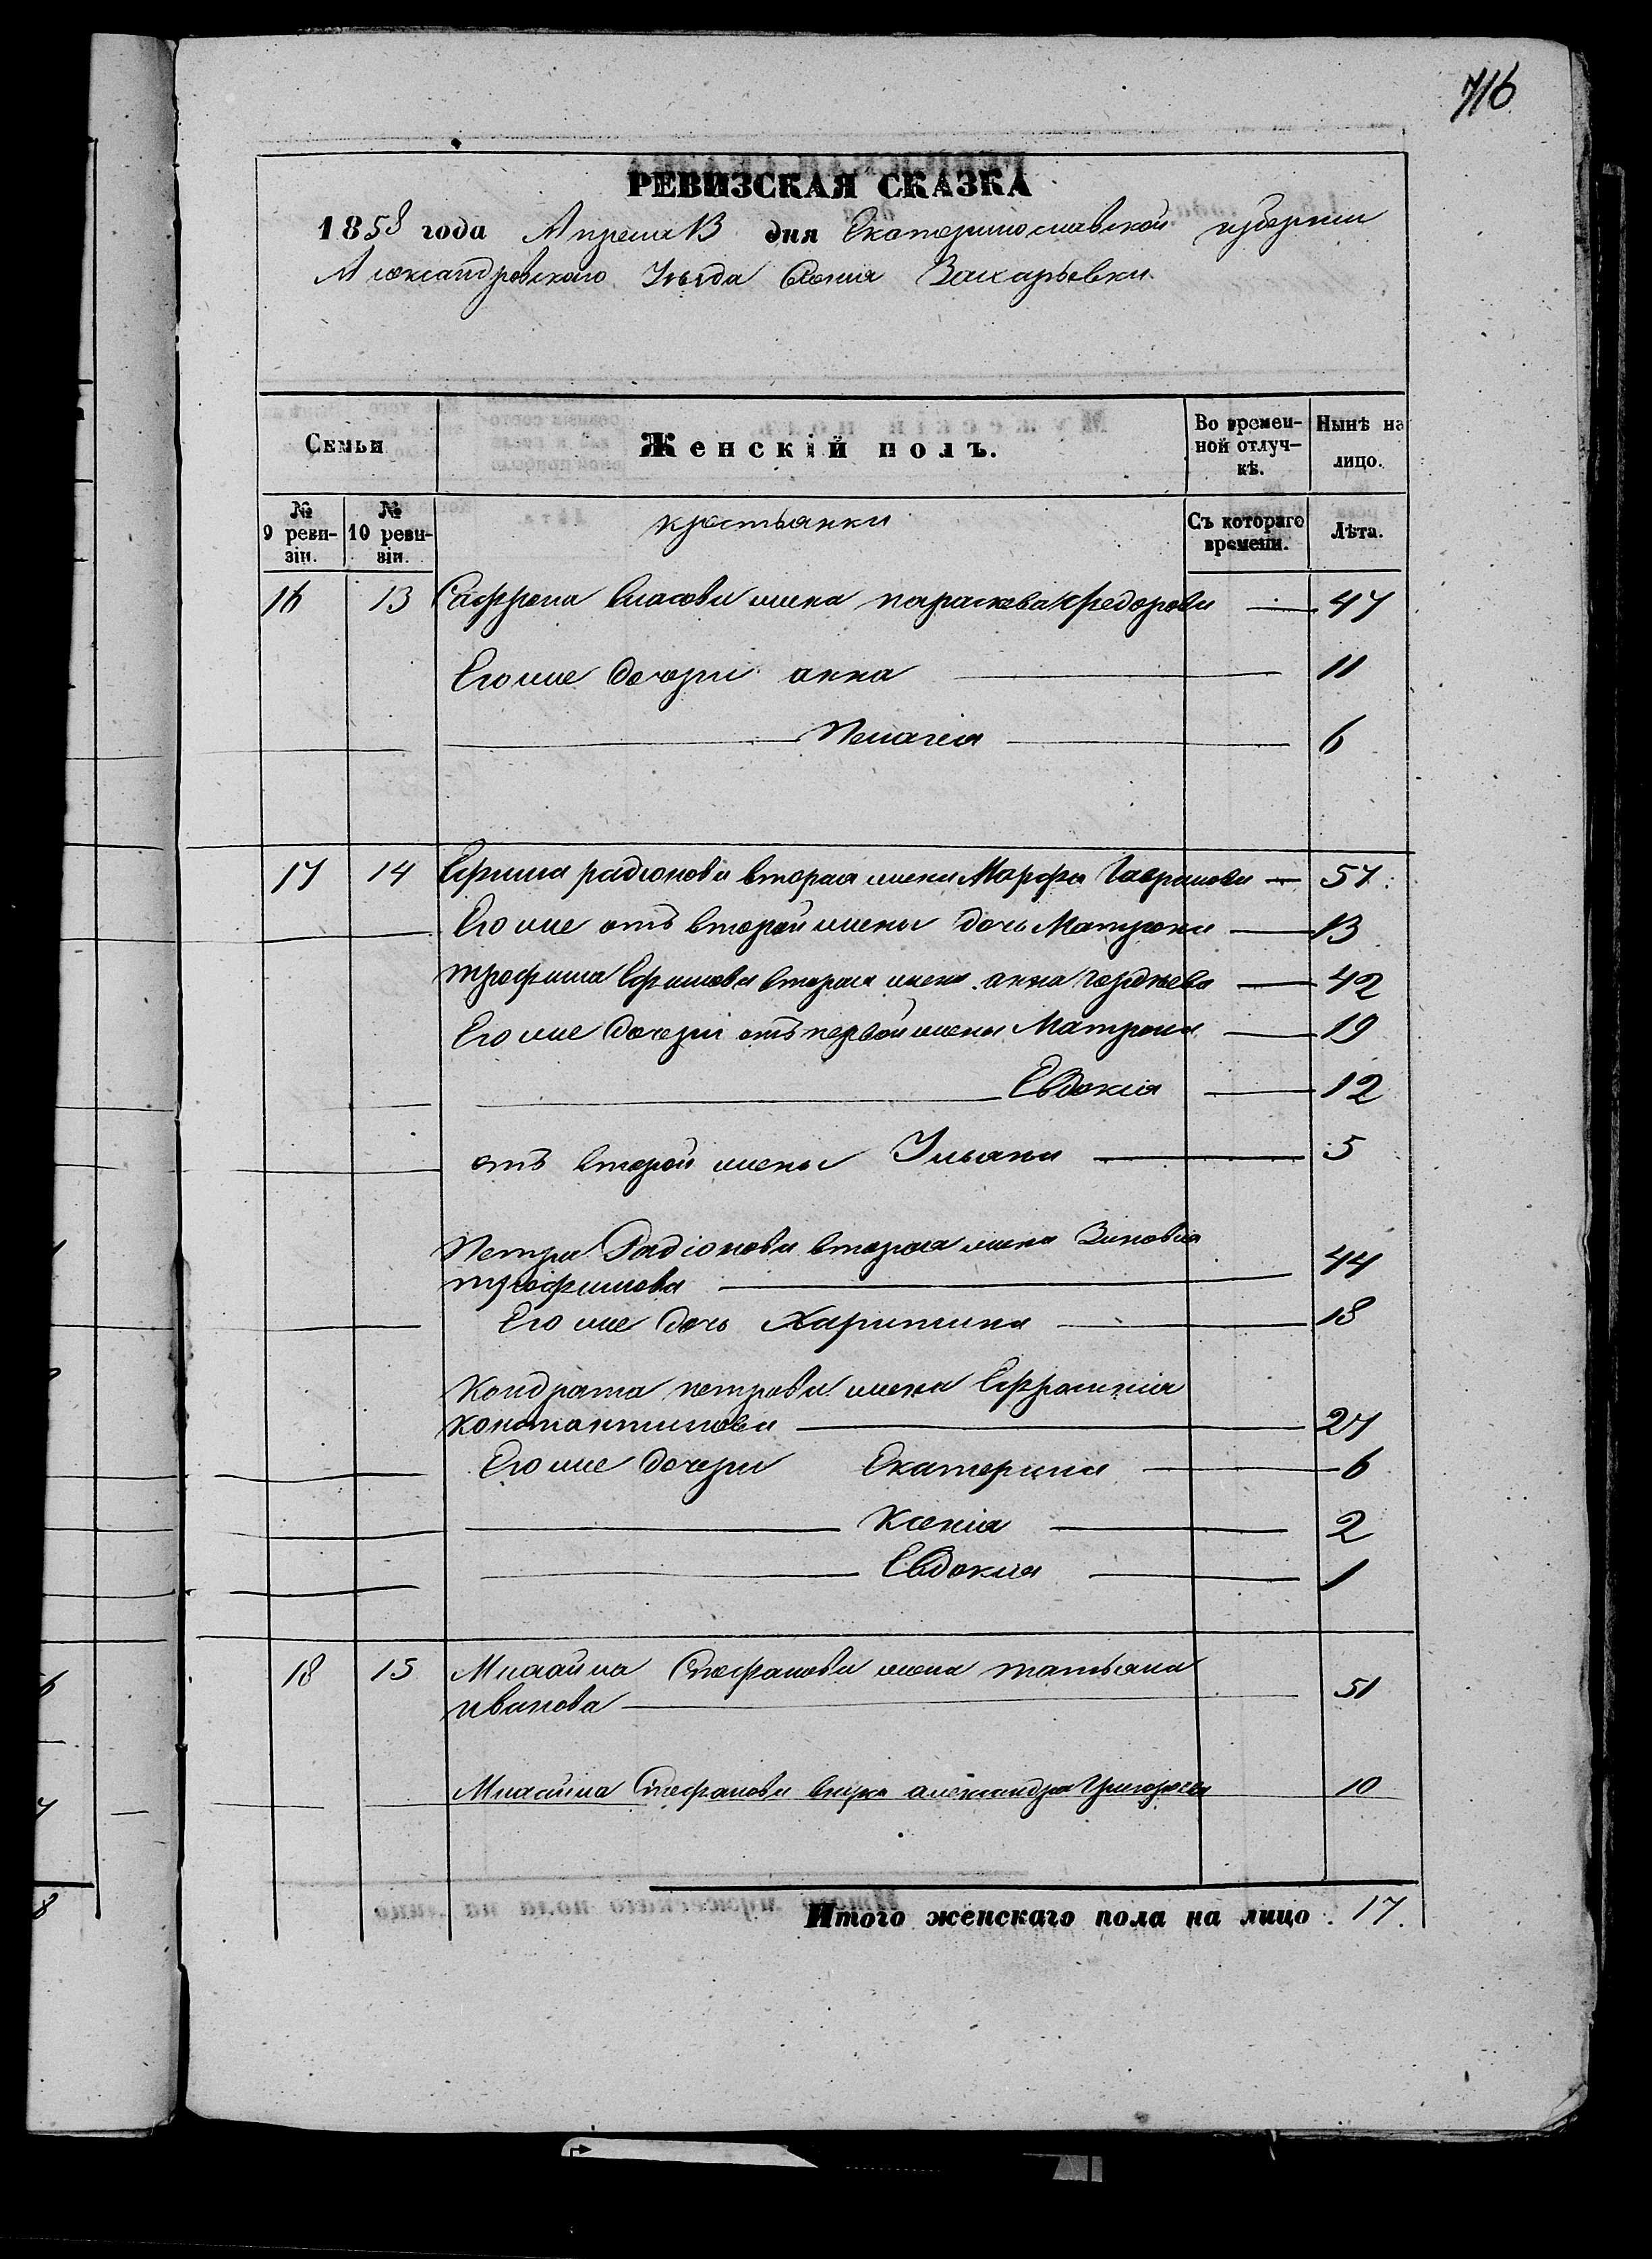 716
РЕВИЗСКАЯ СКАЗКА
1858 года Апреля 13 дня Екатеринославской губернии
Александровскаго Уѣзда Селенія Захарьевки
Семьи
Женскій полъ.
Во времен-
ной отлуч-
кѣ.
Нынѣ на
лицо.
№
9 реви-
зіи.
№
10 реви-
зіи.
крестьянки
Съ котораго
времени.
Лѣта.
16 13 Сафрона власова жена параскева федорова — 47
Его же дочери анна 11
Пелагея 6
17 14 Ефима радіонова вторая жена Марфа Гаврилова — 57
Его же отъ второй жены дочь Матрона 13
трофима Ефимова вторая жена анна гордѣева 42
Его же дочери отъ первой жены Матрона 19
Евдокия 12
отъ второй жены Ульяна 5
Петра Радіонова вторая жена Зиновия
трофимова 44
Его же дочь Харитина 18
Кондрата петрова жена Ефросинія
константинова 27
Его же дочери Екатерина 6
Ксенія 2
Евдокия 1
18 15 Михайла Стефанова жена татьяна
иванова 51
Михайла Стефанова внука александра Григорьева 10
Итого женскаго пола на лицо . 17.